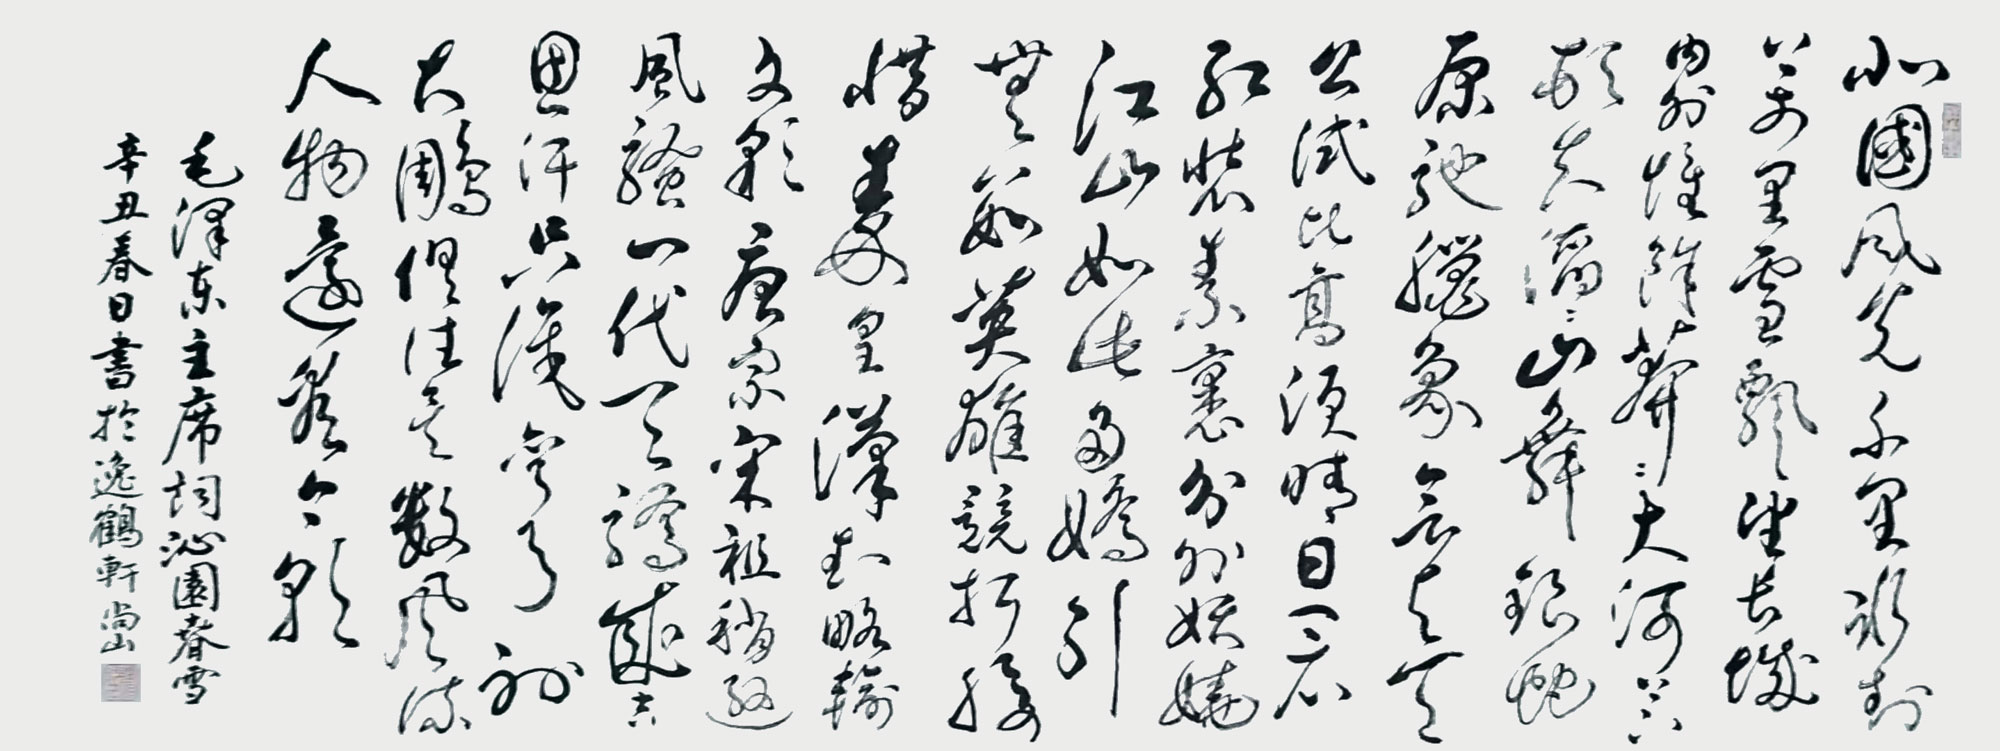 北國風光千里冰封
萬里雪飄望長城
內外惟餘莽〻大河上下
頓失滔〻山舞銀蛇
原馳臘象欲與天
公試比高須晴日看
紅裝素裹分外妖嬈
江山如此多嬌引
無數英雄競折腰
惜秦皇漢武略輸
文彩唐宗宋祖稍遜
風騷一代天驕成吉
思汗只識彎弓射
大鵰俱往矣數風流
人物還看今朝
毛澤东主席詞沁園春雪
辛丑春日書於逸鶴軒尚山